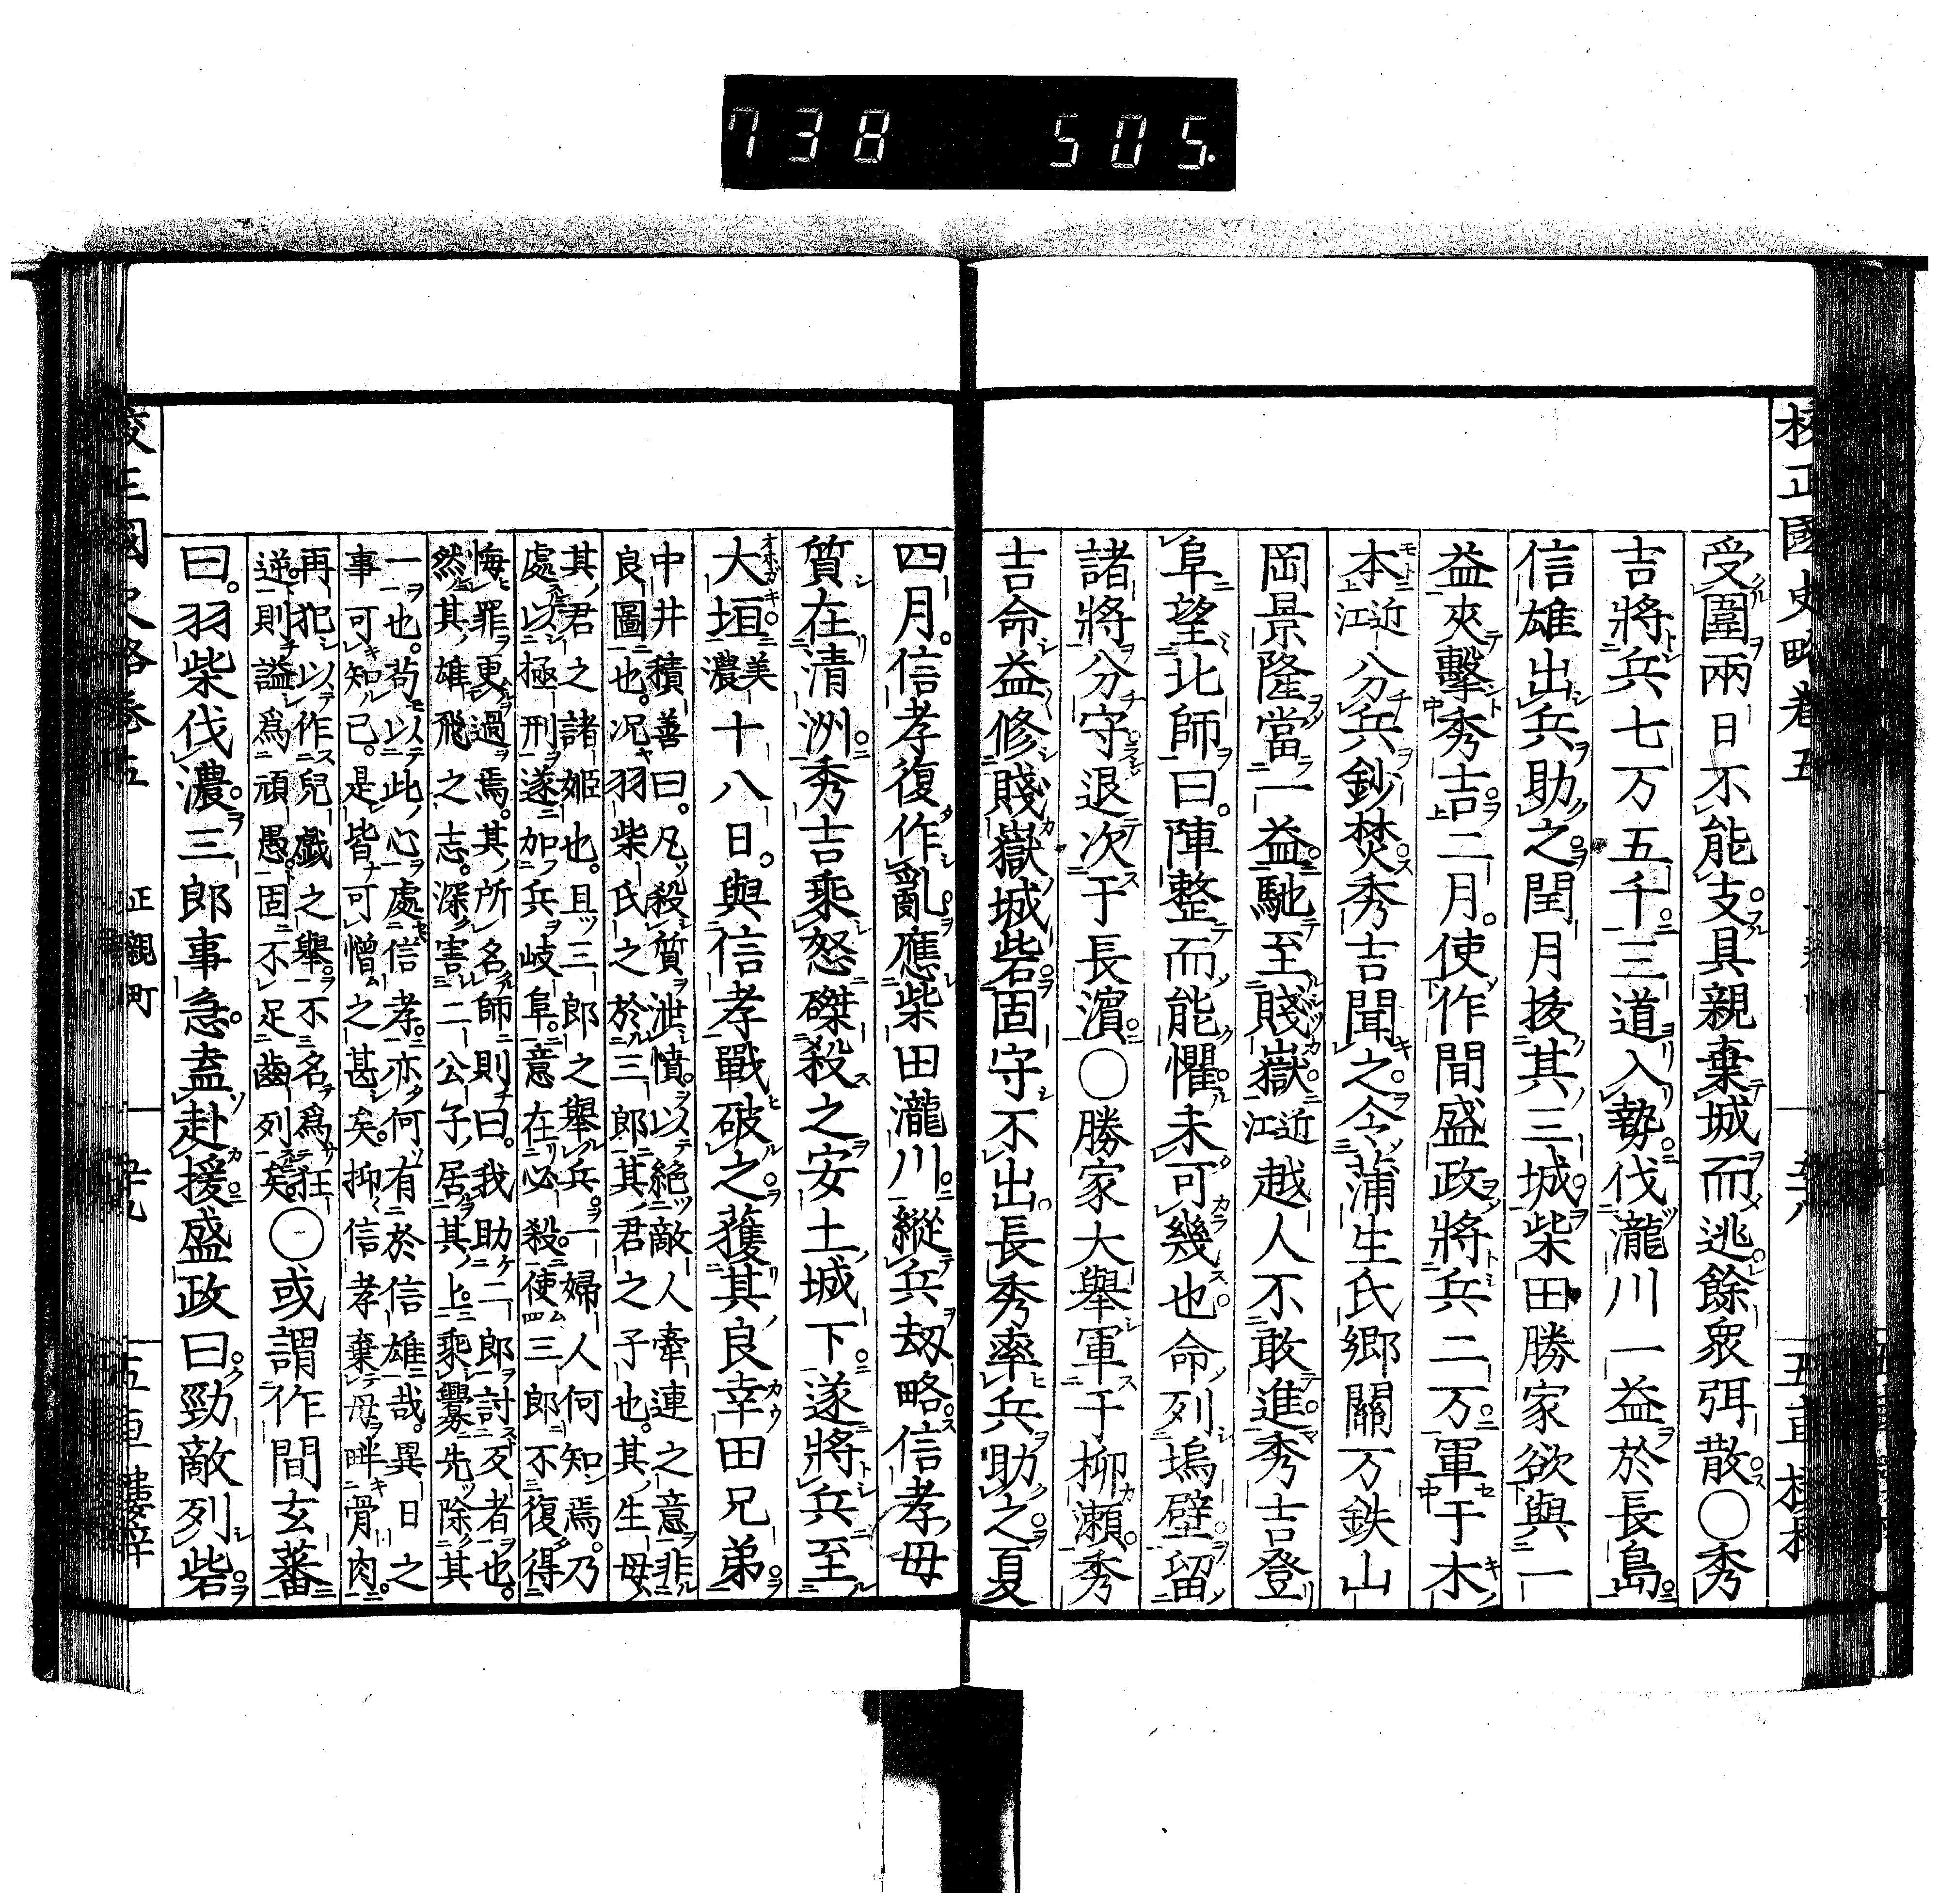 738 505.
校正國史略卷五
受圍兩日不能支具親棄城而逃餘衆弭散〇秀
吉將兵七万五千三道入勢伐瀧川一益於長島
信雄出兵助之閏月拔其三城柴田勝家欲與一
益夾擊秀吉二月使作間盛政將兵二万軍于木
本近江分兵鈔焚秀吉聞之令蒲生氏郷關万鉄山
岡景隆當一益馳至賤嶽近江越人不敢進秀吉登
阜望北師曰陣整而能懼未可幾也命列塢壁留
諸將分守退次于長濵〇勝家大舉軍于柳瀬秀
吉命益修賤嶽城砦固守不出長秀率兵助之夏
四月信孝復作亂應柴田瀧川縱兵刼略信孝母
質在清洲秀吉乘怒磔殺之安土城下遂將兵至
大垣美濃十八日與信孝戰破之獲其良幸田兄弟
中井積善曰凡殺質泄憤以絶敵人牽連之意非
良圖也况羽柴氏之於三郎其君之子也其生母
其君之諸姫也且三郎之舉兵一婦人何知焉乃
處以極刑遂加兵岐阜意在必殺使三郎不復得
悔罪更過焉其所名師則曰我助二郎討歹者也
然其雄飛之志深害二公子居其上乘釁先除其
一也苟以此心處信孝亦何有於信雄哉異日之
事可知已是皆可憎之甚矣抑信孝棄母畔骨肉
再犯以作兒戲之舉不名爲狂
逆則謚爲頑愚固不足齒列矣〇或謂作間玄蕃
曰羽柴伐濃三郎事急盍赴援盛政曰勁敵列砦
國史略卷五
正親町